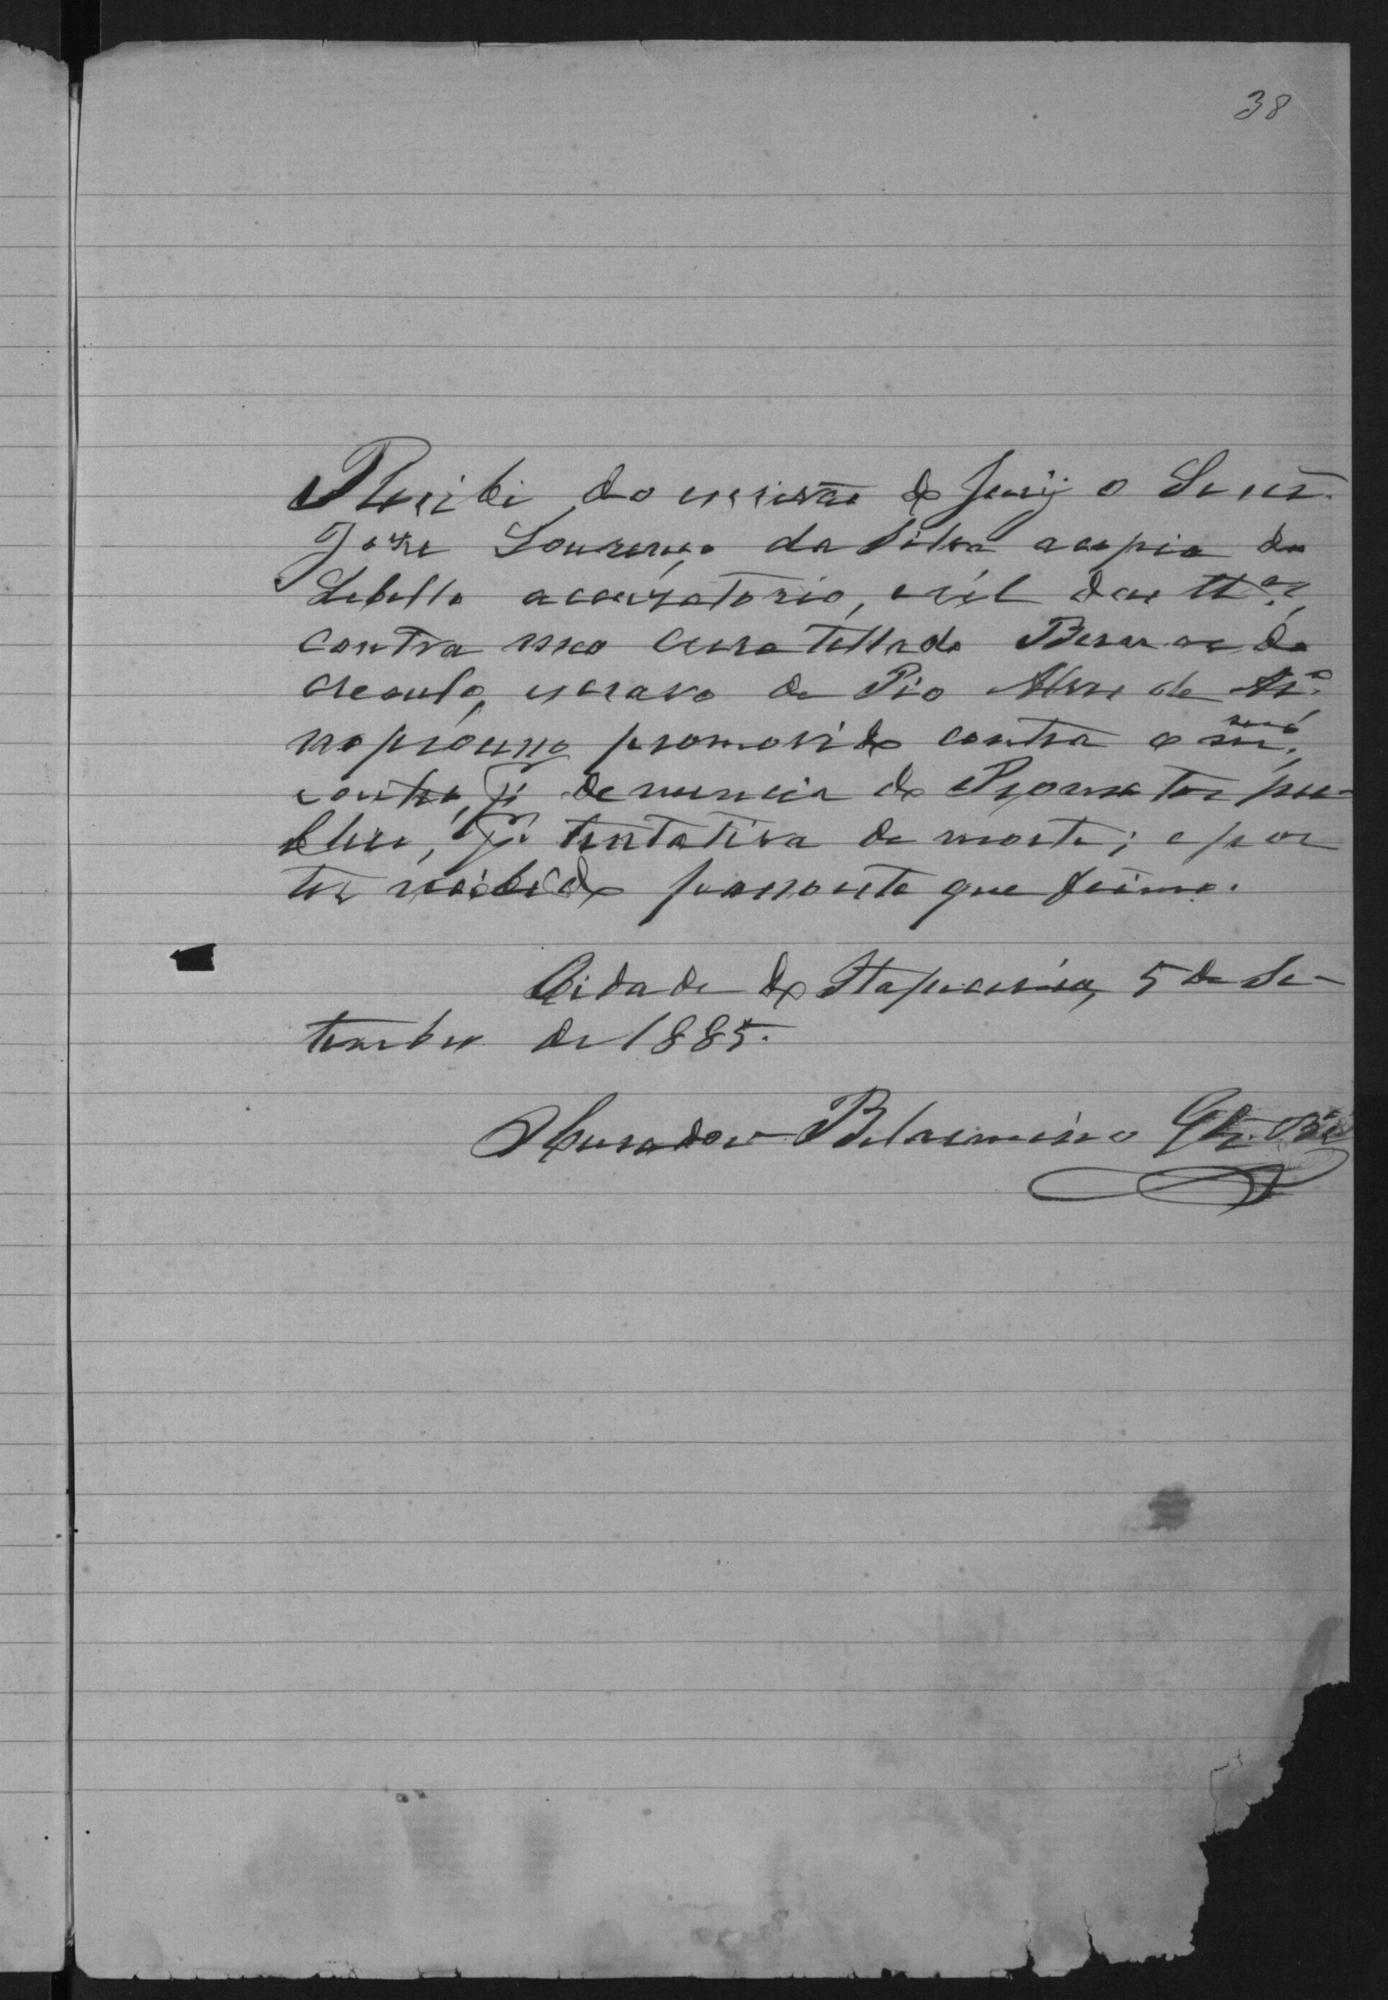 38
Recibi do escrivão do Jury o Senr.
Jose Lourenço da Silva a copia do
Lebello accusatorio, e rol das tt.as
contra meo curatellado Bernardo
creoulo, escravo de Pio Alves de Ar.o
no processo promovido contra o
contra, pr denuncia do Promotor pu-
blico, pr tentativa de morte; e por
ter recibido passo esta que firmo.
Cidade de Itapecerica, 5 de Se-
tembro de 1885.
O Curador Belarmino